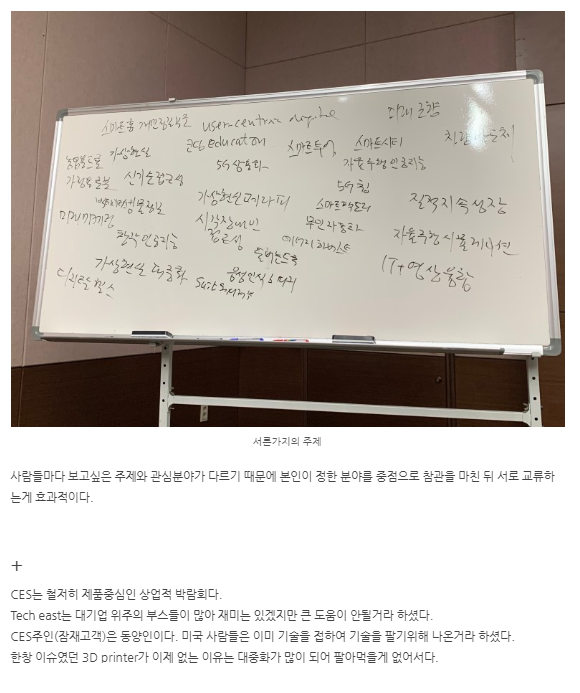 스마트홈 개인접근성
user-centric
미래 운항
근디 Education
스마트투어
스마트시티
가상현실
5G 상용화
자율주행 인공지능
가정용 로봇
신기술 접근성
5G 칩
가상현실 테라피
스마트팩토리
질적지속성장
미래먹거리
시각장애인
접근성
무인자동차
청각 인공지능
에너지 하베스트
자율주행 시뮬레이션
가상현실 대중화
음성인식
IT+영상융합
디지털 헬스
서른가지의 주제
사람들마다 보고싶은 주제와 관심분야가 다르기 때문에 본인이 정한 분야를 중점으로 참관을 마친 뒤 서로 교류하
는게 효과적이다.
+
CES는 철저히 제품중심인 상업적 박람회다.
Tech east는 대기업 위주의 부스들이 많아 재미는 있겠지만 큰 도움이 안될거라 하셨다.
CES주인(잠재고객)은 동양인이다. 미국 사람들은 이미 기술을 접하여 기술을 팔기위해 나온거라 하셨다.
한창 이슈였던 3D printer가 이제 없는 이유는 대중화가 많이 되어 팔아먹을게 없어서다.